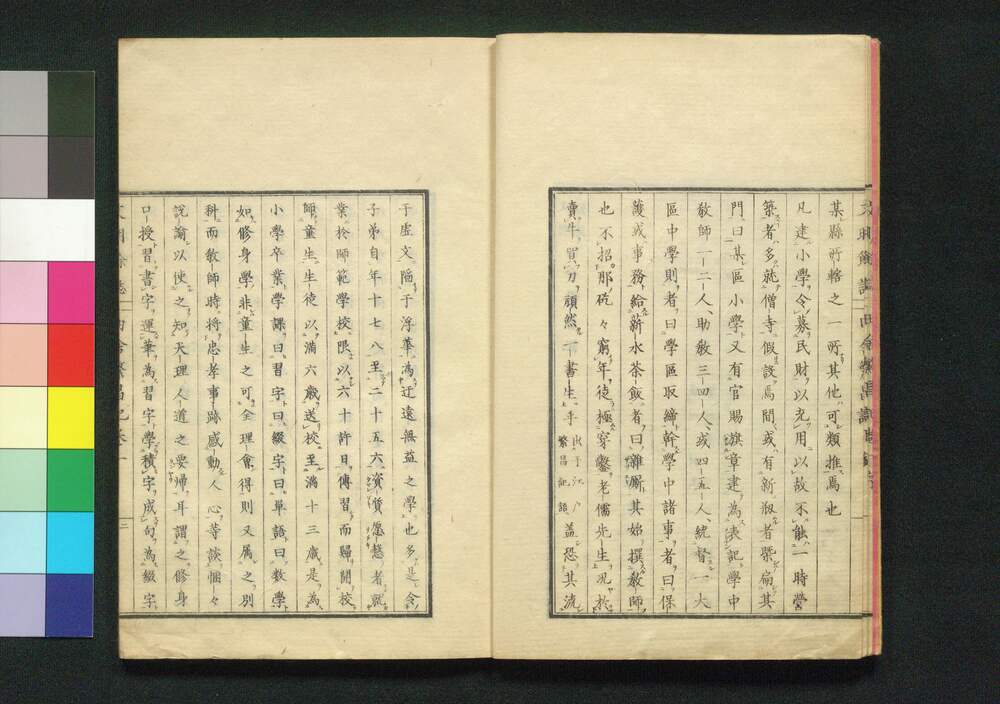 某縣所轄之一所其他可類推焉也
凡建小學令募民財以充用以故不能一時營
築者多就僧寺假設焉間或有新版者槩扁其
門曰某區小學又有官賜旗章建為表記學中
教師一二人助教三四人或四五人統督一大
區中學則者曰學區取締幹學中諸事者曰保
護或事務給薪水茶飯者曰雜厮其始撰教師
也不招那矻々窮年徒極穿鑿老儒先生况於
賣牛買刀頑然一書生乎
出于江戶
繁昌記語
蓋恐其流
于虛文陷于浮華為迂遠無益之學也多是令
子弟自年十七八至二十五六資質愿慤者就
業於師範學校限以六十許日傳習而歸開校
師童生生徒以滿六歲送校至滿十三歲是為
小學卒業學課曰習字曰綴字曰單語曰數學
如修身學非童生之可全理會得則又属之別
科而教師時將忠孝事跡感動人心等談悃々
說諭以使之知天理人道之要歸耳謂之修身
口授習書字運筆為習字學積字成句為綴字